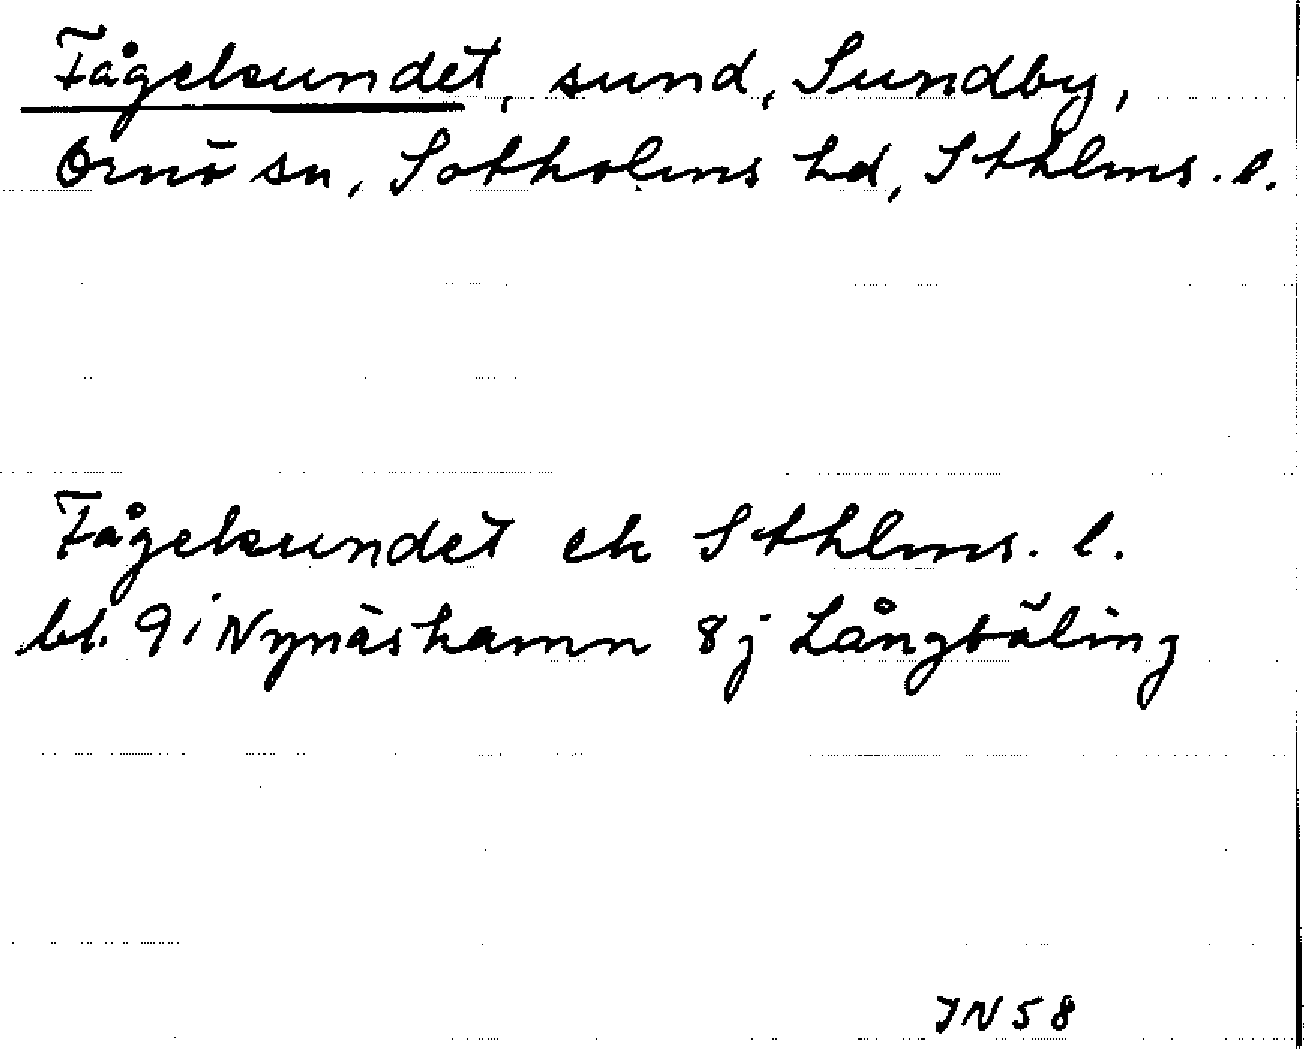 Fågelsundet, sund, Sundby,
Ornö sn, Sotholms hd, Sthlms. l.
Fågelsundet ek Sthlms. l.
bl. 9 i Nynäshamn 8j Långbäling
JN 58